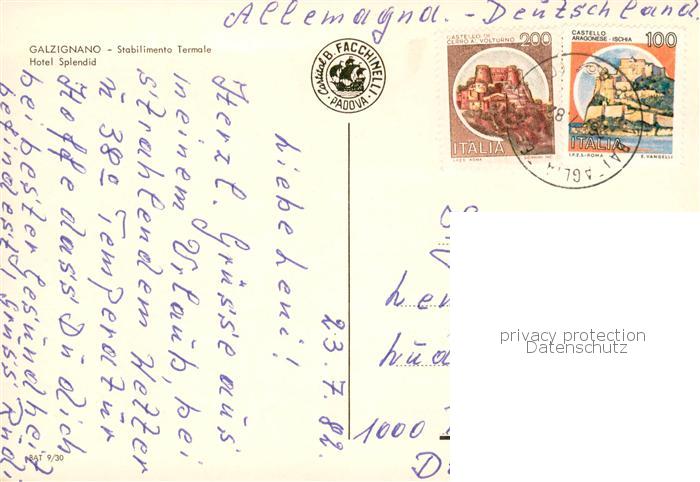 Allemagna. - Deutschland
GALZIGNANO - Stabilimento Termale
Hotel Splendid
Cartical B. FACCHINELLI
PADOVA
CASTELLO DI
CERRO AL VOLTURNO 200
ITALIA
I.P.Z.S. ROMA
CASTELLO
ARAGONESE - ISCHIA 100
ITALIA
I.P.Z.S. - ROMA E. VANGELLI
23.7.82.
Liebe Leni!
Herzl. Grüsse aus
meinem Urlaub, bei
strahlendem Wetter
u 38° Temperatur
Hoffe dass Du dich
bei bester Gesundheit
befindest! Gruss Rudi
1000
privacy protection
Datenschutz
BAT 9/30